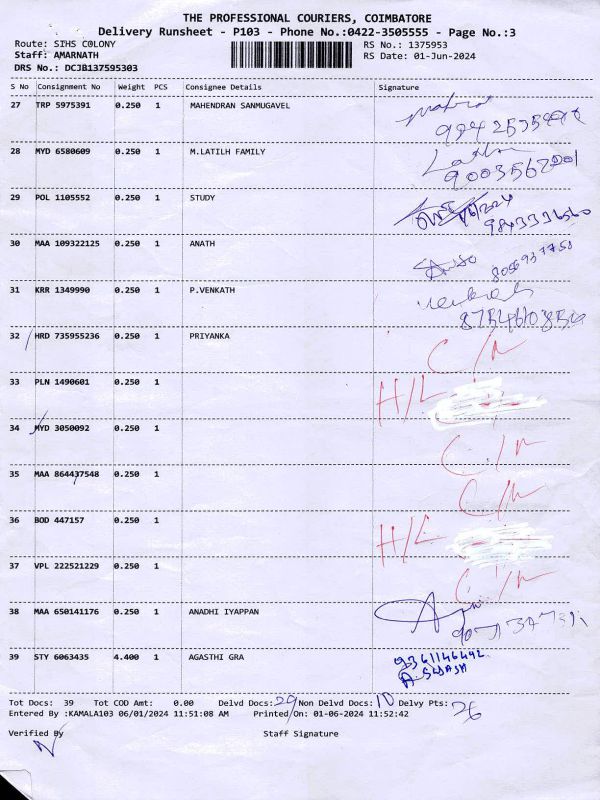 THE PROFESSIONAL COURIERS, COIMBATORE
Delivery Runsheet - P103 - Phone No.:0422-3505555 - Page No.:3
Route: SIHS COLONY RS No.: 1375953
Staff: AMARNATH RS Date: 01-Jun-2024
DRS No.: DCJB137595303
S No Consignment No Weight PCS Consignee Details Signature
27 TRP 5975391 0.250 1 MAHENDRAN SANMUGAVEL
28 MYD 6580609 0.250 1 M.LATILH FAMILY
9003562001
29 POL 1105552 0.250 1 STUDY
30 MAA 109322125 0.250 1 ANATH
8056937758
31 KRR 1349990 0.250 1 P.VENKATH
32 HRD 735955236 0.250 1 PRIYANKA C/N
33 PLN 1490601 0.250 1 H/L
34 MYD 3050092 0.250 1 C/N
35 MAA 864437548 0.250 1 C/N
36 BOD 447157 0.250 1 H/L
37 VPL 222521229 0.250 1 C/N
38 MAA 650141176 0.250 1 ANADHI IYAPPAN
39 STY 6063435 4.400 1 AGASTHI GRA 9361146442
Tot Docs: 39 Tot COD Amt: 0.00 Delvd Docs: 29 Non Delvd Docs: 10 Delvy Pts: 26
Entered By :KAMALA103 06/01/2024 11:51:08 AM Printed On: 01-06-2024 11:52:42
Verified By Staff Signature